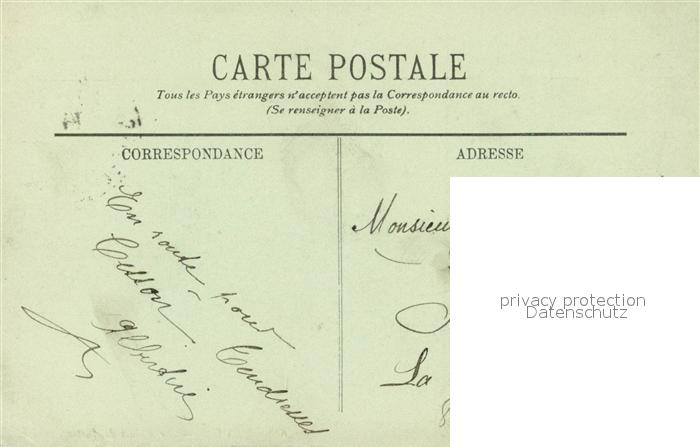 CARTE POSTALE
Tous les Pays étrangers n'acceptent pas la Correspondance au recto.
(Se renseigner à la Poste).
CORRESPONDANCE
ADRESSE
En route pour
Cesson
Tendresses
Albertine
Monsieu
La
privacy protection
Datenschutz